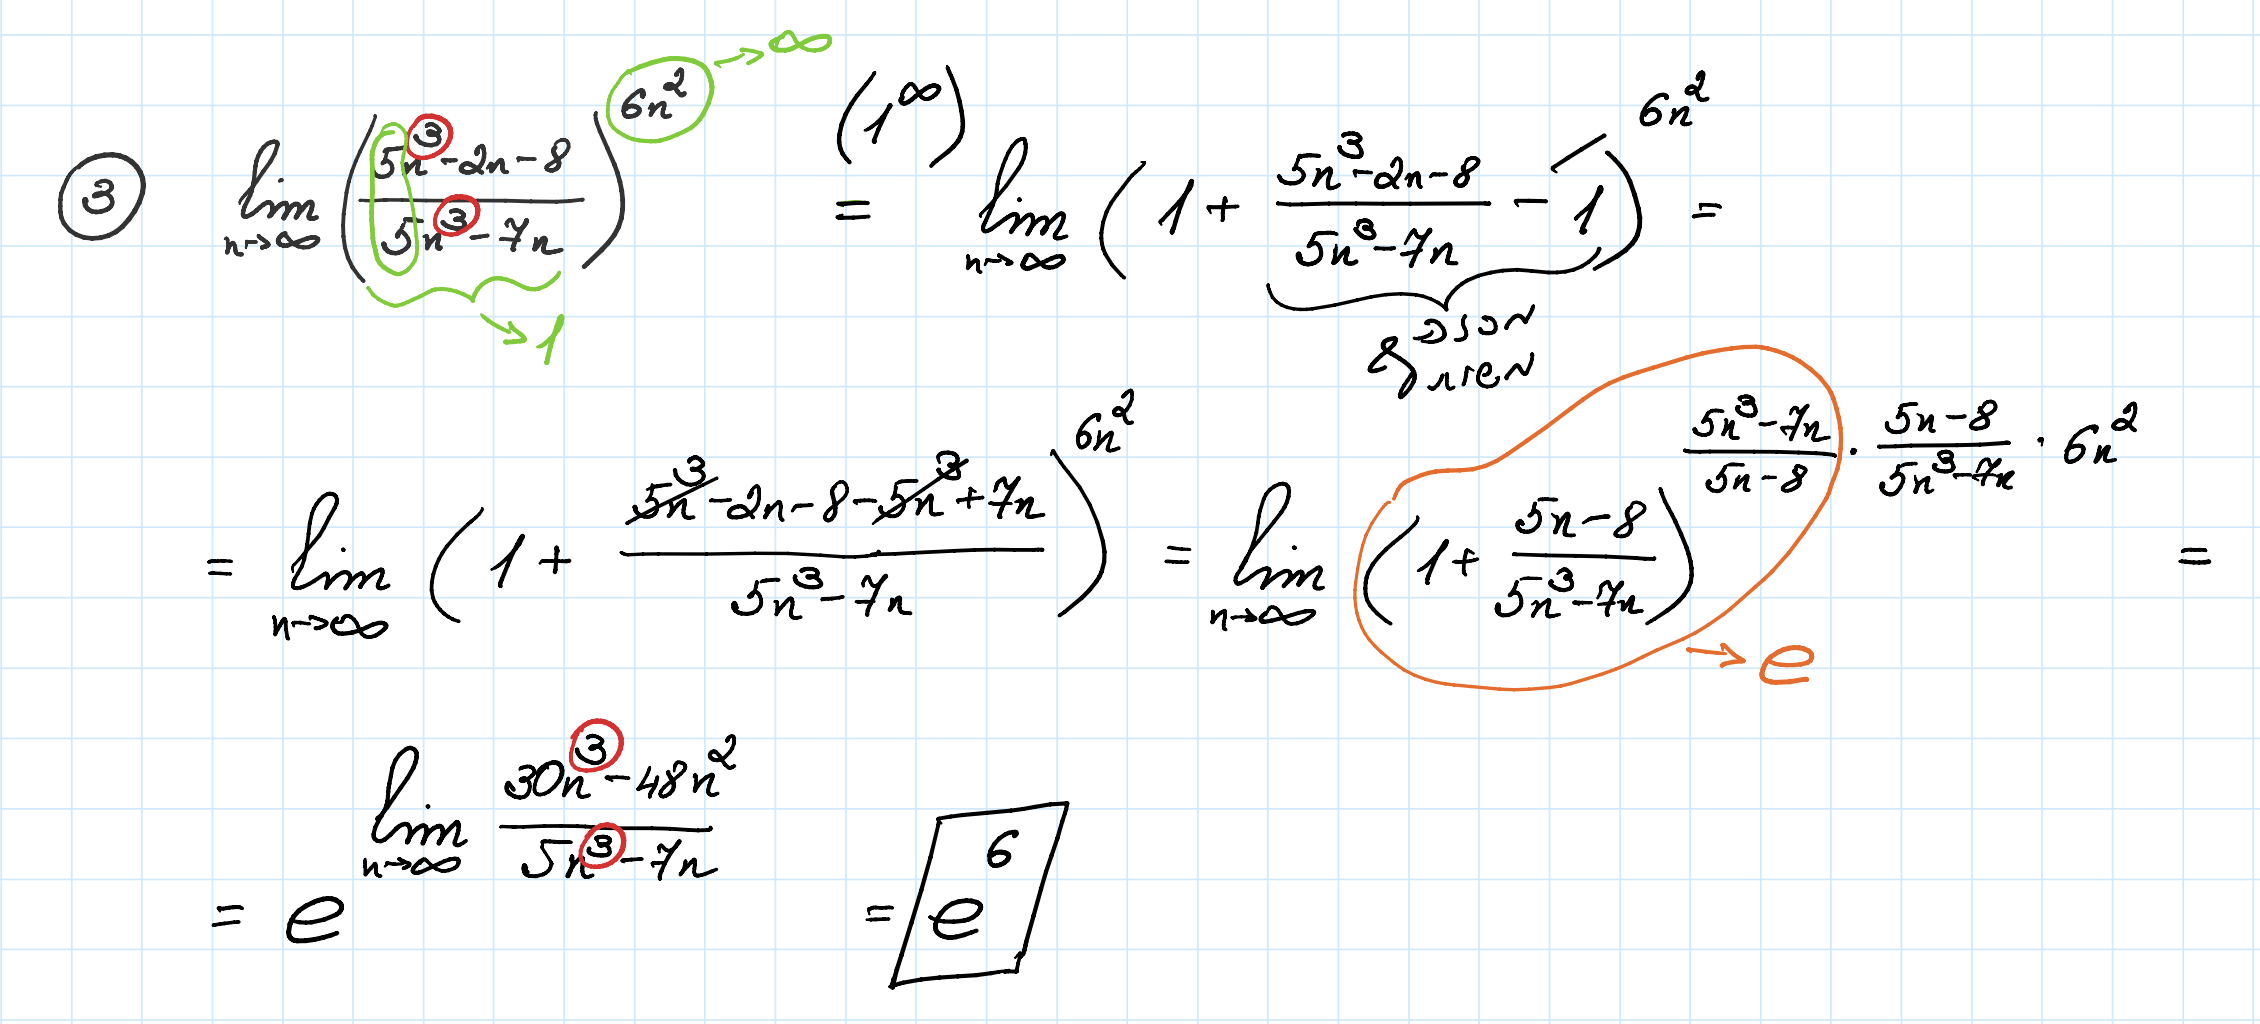 ③ lim n→∞ ((5n³-2n-8)/(5n³-7n))^(6n²) → ∞ (1^∞) = lim n→∞ (1 + (5n³-2n-8)/(5n³-7n) - 1)^(6n²) =
→ 1
= lim n→∞ (1 + (5n³-2n-8-5n³+7n)/(5n³-7n))^(6n²) = lim n→∞ (1 + (5n-8)/(5n³-7n))^((5n³-7n)/(5n-8) · (5n-8)/(5n³-7n) · 6n²) =
→ e
= e^(lim n→∞ (30n³-48n²)/(5n³-7n)) = e⁶